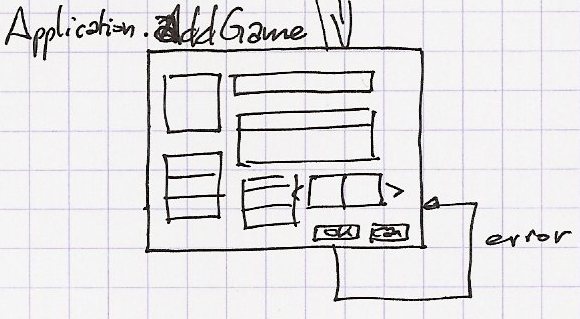 Application.AddGame
< >
OK Can
error